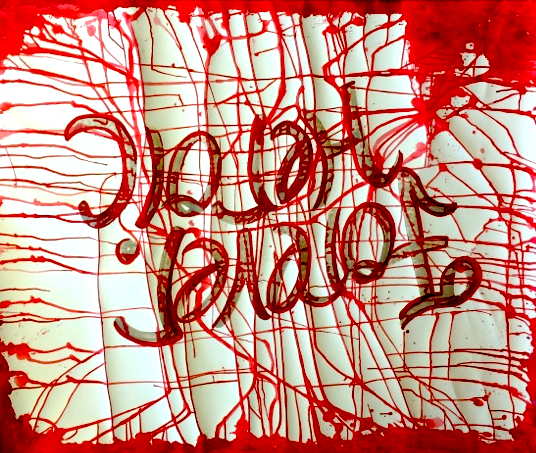 Forever
Heroic